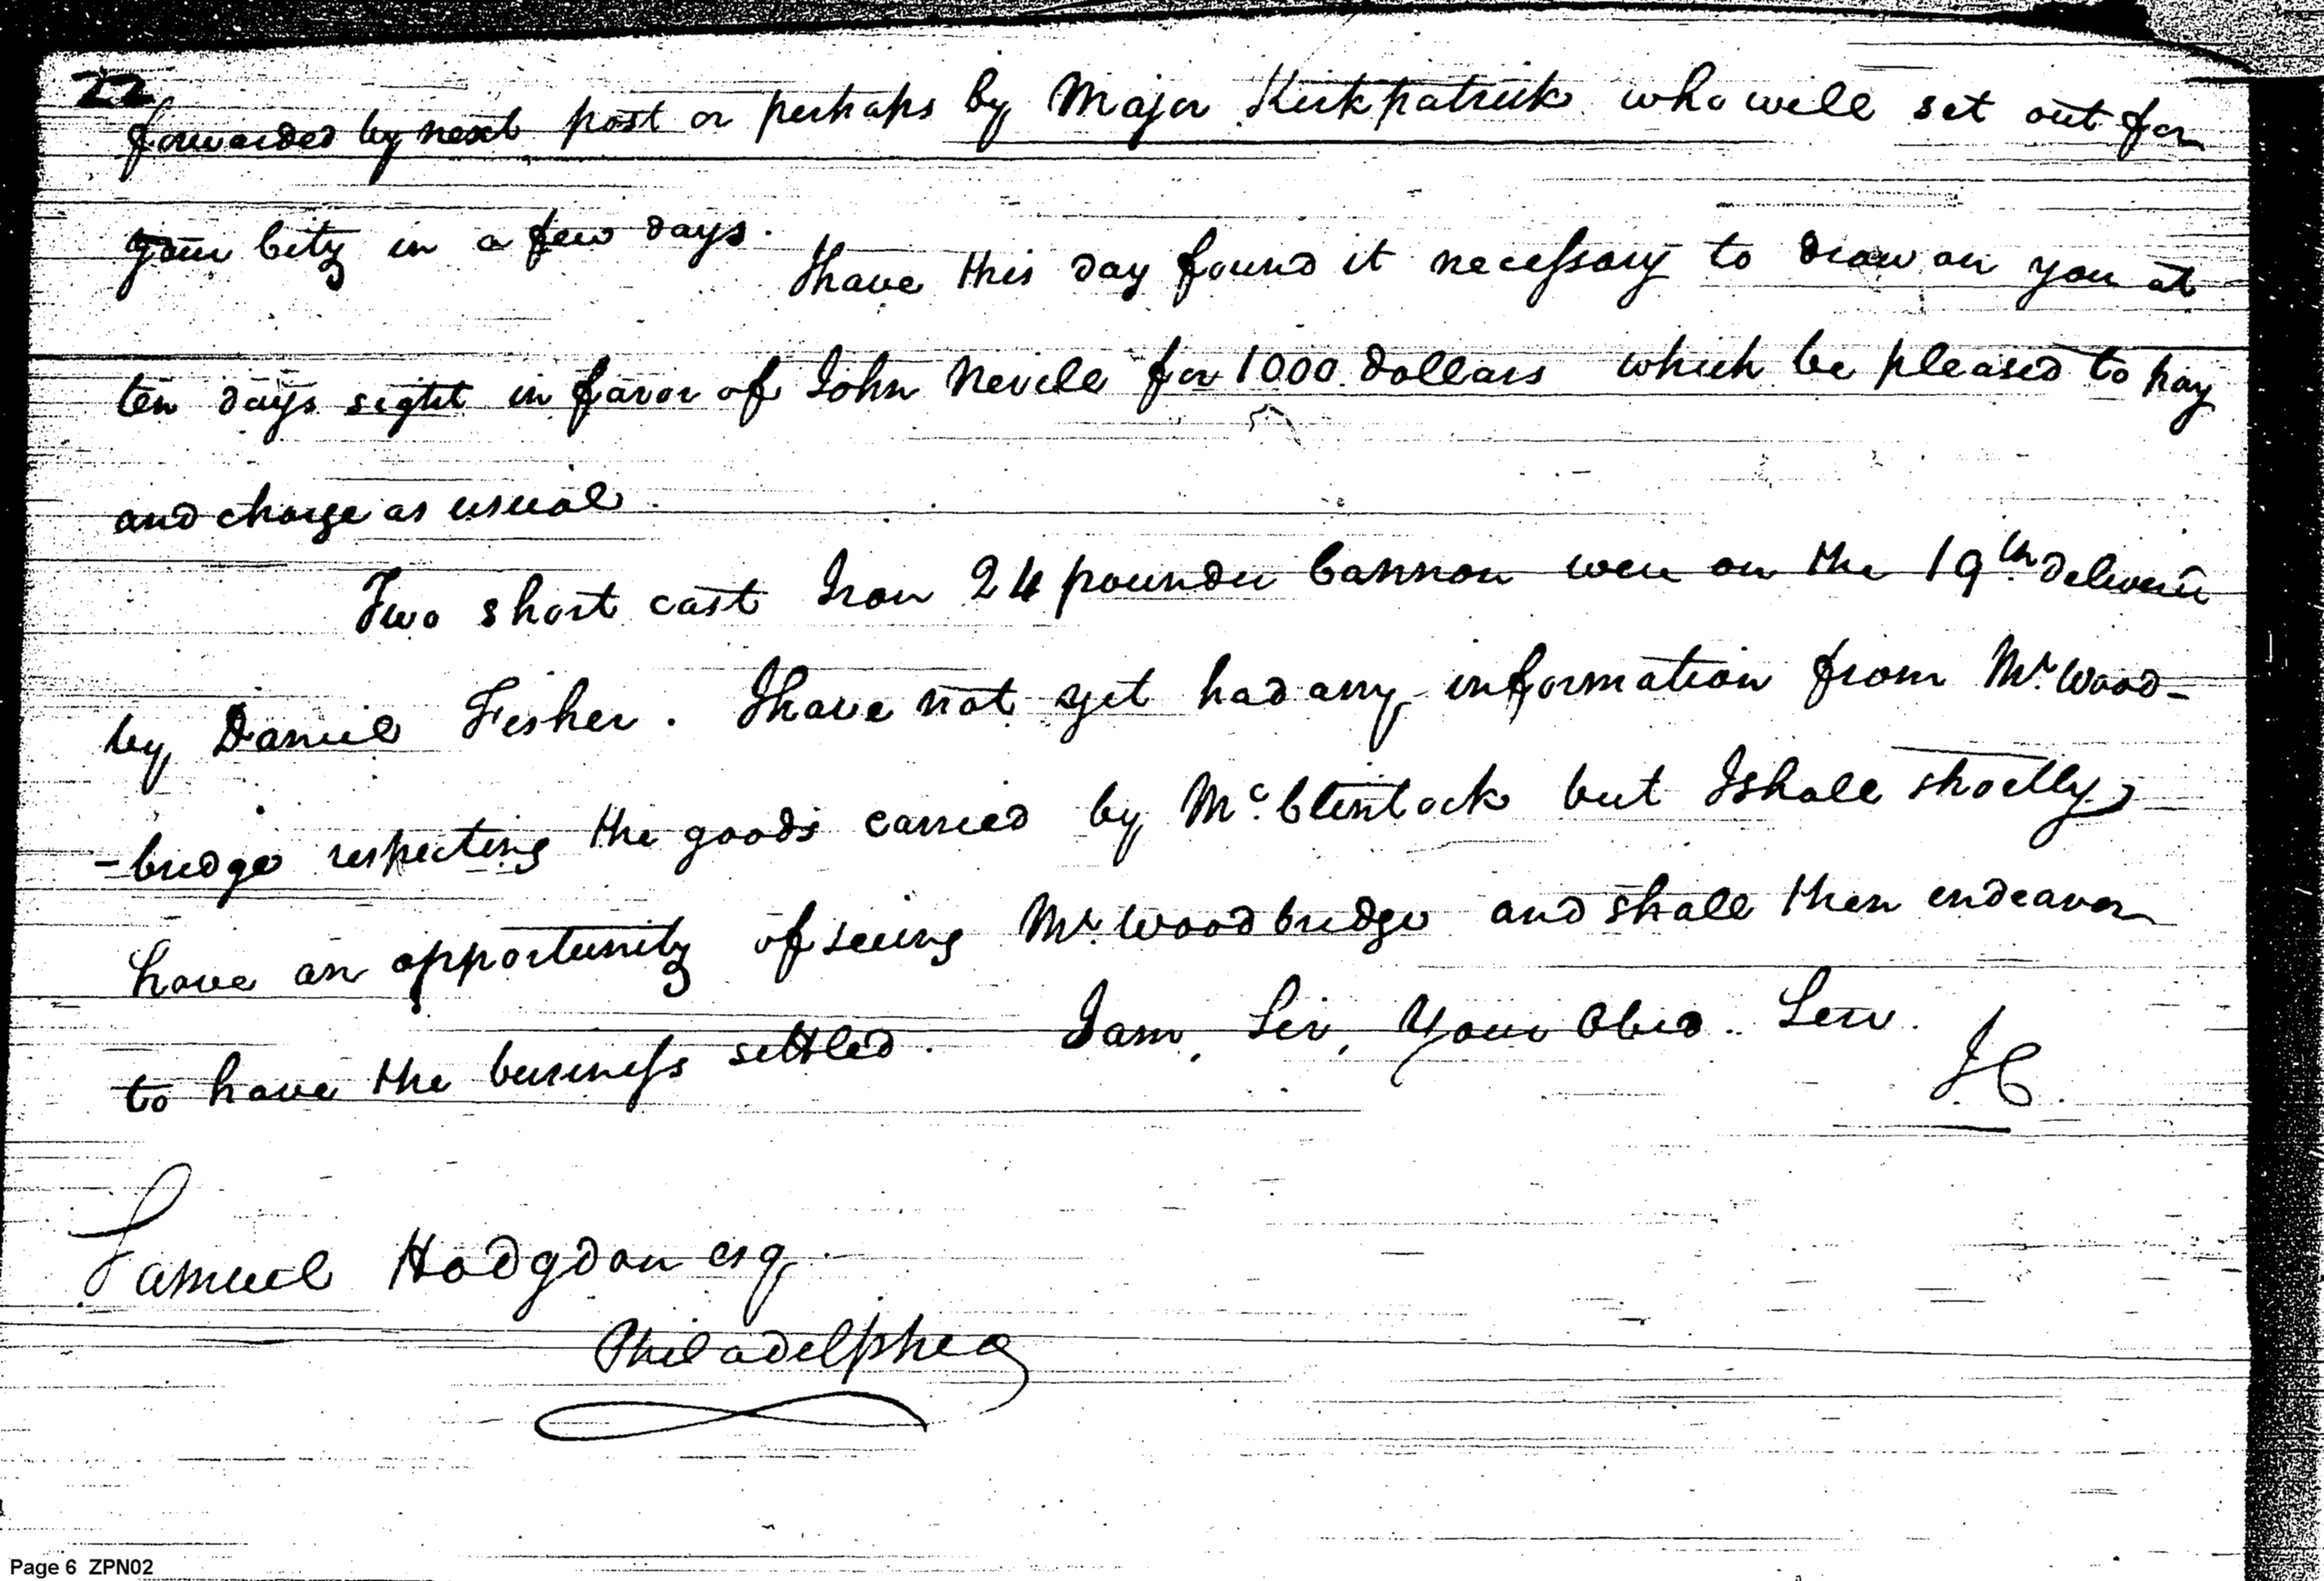 22
forwarded by next post or perhaps by Major Kirkpatrick who will set out for
your City in a few days.
I have this day found it necessary to draw on you at
ten days sight in favor of John Nevile for 1000 dollars which be pleased to pay
and charge as usual.
Two short cast Iron 24 pounder Cannon were on the 19th deliverd
by Daniel Fisher. I have not yet had any information from Mr. Wood-
-bridge respecting the goods carried by Mc.Clintock but I shall shortly
have an opportunity of seeing Mr. Woodbridge and shall then endeavor
to have the business settled. I am, Sir, Your Obed. Serv.
JC.
Samuel Hodgdon esq.
Philadelphia
Page 6 ZPN02